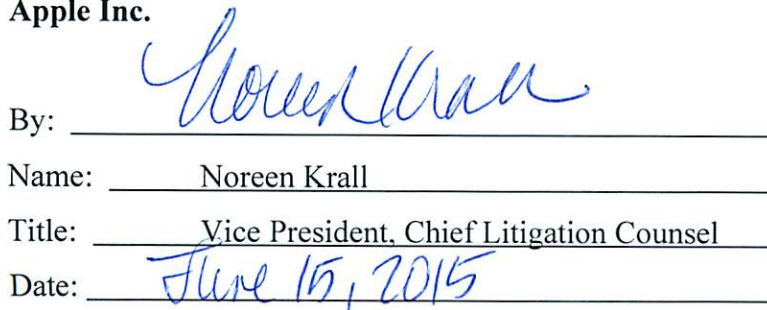 Apple Inc.
By: Noreen Krall
Name: Noreen Krall
Title: Vice President, Chief Litigation Counsel
Date: June 15, 2015